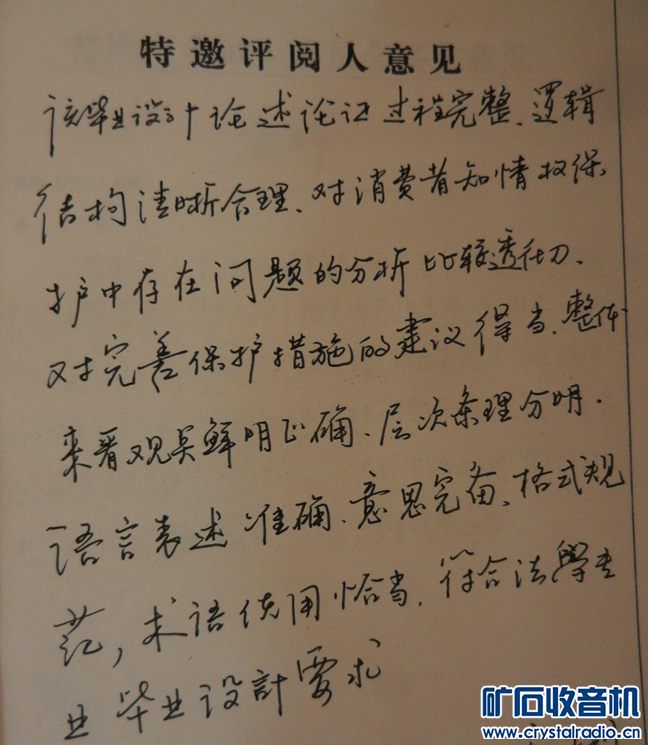 特邀评阅人意见
该毕业设计论述论证过程完整、逻辑
结构清晰合理、对消费者知情权保
护中存在问题的分析比较透彻、
对完善保护措施的建议得当、整体
来看观点鲜明正确、层次条理分明.
语言表述准确、意思完备、格式规
范,术语使用恰当.符合法學专
业毕业设計要求
矿石收音机
www.crystalradio.cn